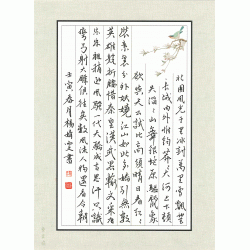 北国风光千里冰封万里雪飘望
长城内外惟余莽莽大河上下
失滔滔山舞银蛇原驰蜡象
欲与天公试比高须晴日看红
装素裹分外妖娆江山如此多娇引无数
英雄竞折腰惜秦皇汉武略输文采唐
宗宋祖稍逊风骚一代天骄成吉思汗只识
弯弓射大雕俱往矣数风流人物还看今朝
壬寅春月杨 书